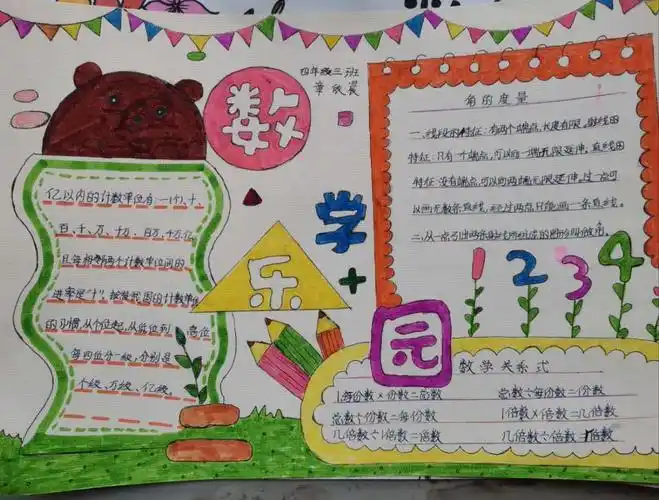 四年级三班
章欣晨
数
学
乐
园
亿以内的计数单位有:一(个)、十、
百、千、万、十万、百万、千万、亿
且每相邻两个计数单位间的
进率是“十”。按照我国的计数单位
的习惯,从个位起,从低位到高位
每四位分一级,分别是
个级、万级、亿级。
角的度量
一、线段的特征:有两个端点,长度有限。射线的
特征:只有一个端点,可以向一端无限延伸。直线的
特征:没有端点,可以向两端无限延伸。过一点可
以画无数条直线,经过两点只能画一条直线。
二、从一点引出两条射线所组成的图形叫做角。
1 2 3 4
数学关系式
1每份数×份数=总数 总数÷每份数=份数
总数÷份数=每份数 1倍数×倍数=几倍数
几倍数÷1倍数=倍数 几倍数÷倍数=1倍数